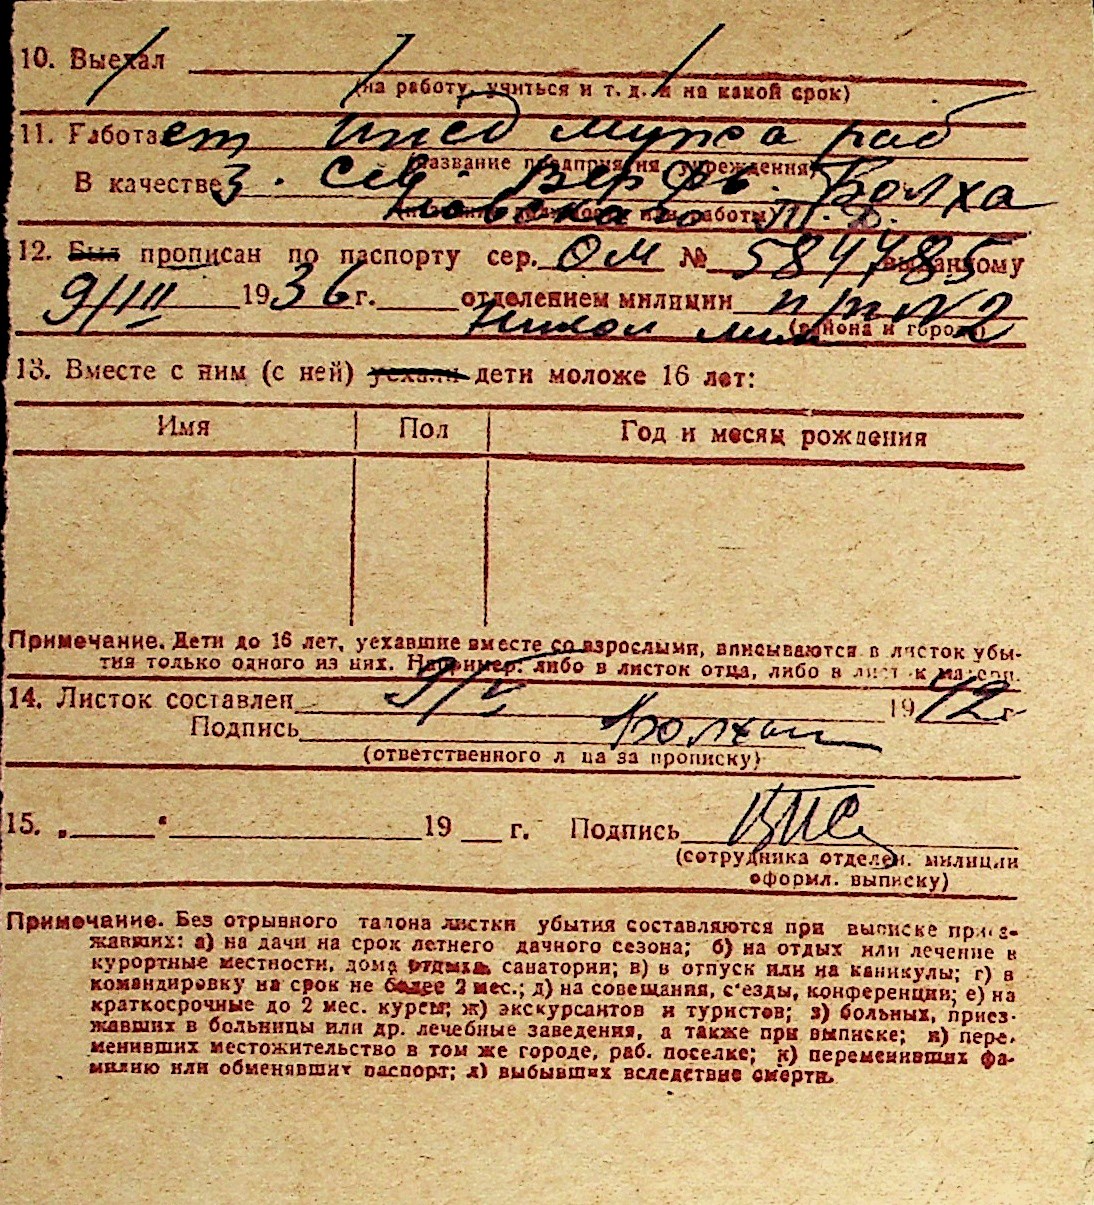 10. Выехал
(на работу, учиться и т. д. и на какой срок)
11. Работает мужа раб
(название предприятия учреждения)
В качестве з. Сев. Верфь. Болха
или работы) Т. Д.
12. Был прописан по паспорту сер. ОМ № 584785 выданному
9/III 1936 г. отделением милиции п/т N2
мил (района и города)
13. Вместе с ним (с ней) уехали дети моложе 16 лет:
Имя Пол Год и месяц рождения
Примечание. Дети до 16 лет, уехавшие вместе со взрослыми, вписываются в листок убы-
тия только одного из них. Например: либо в листок отца, либо в листок матери.
14. Листок составлен 9/V 1942 г
Подпись Болхан
(ответственного л ца за прописку)
15. „ “ 19 г. Подпись
(сотрудника отделен. милиции
оформл. выписку)
Примечание. Без отрывного талона листки убытия составляются при выписке приез-
жавших: а) на дачи на срок летнего дачного сезона; б) на отдых или лечение в
курортные местности, дома отдыха, санатории; в) в отпуск или на каникулы; г) в
командировку на срок не более 2 мес.; д) на совещания, с'езды, конференции; е) на
краткосрочные до 2 мес. курсы; ж) экскурсантов и туристов; з) больных, приез-
жавших в больницы или др. лечебные заведения, а также при выписке; и) пере-
менивших местожительство в том же городе, раб. поселке; к) переменивших фа-
милию или обменявших паспорт; л) выбывших вследствие смерти.